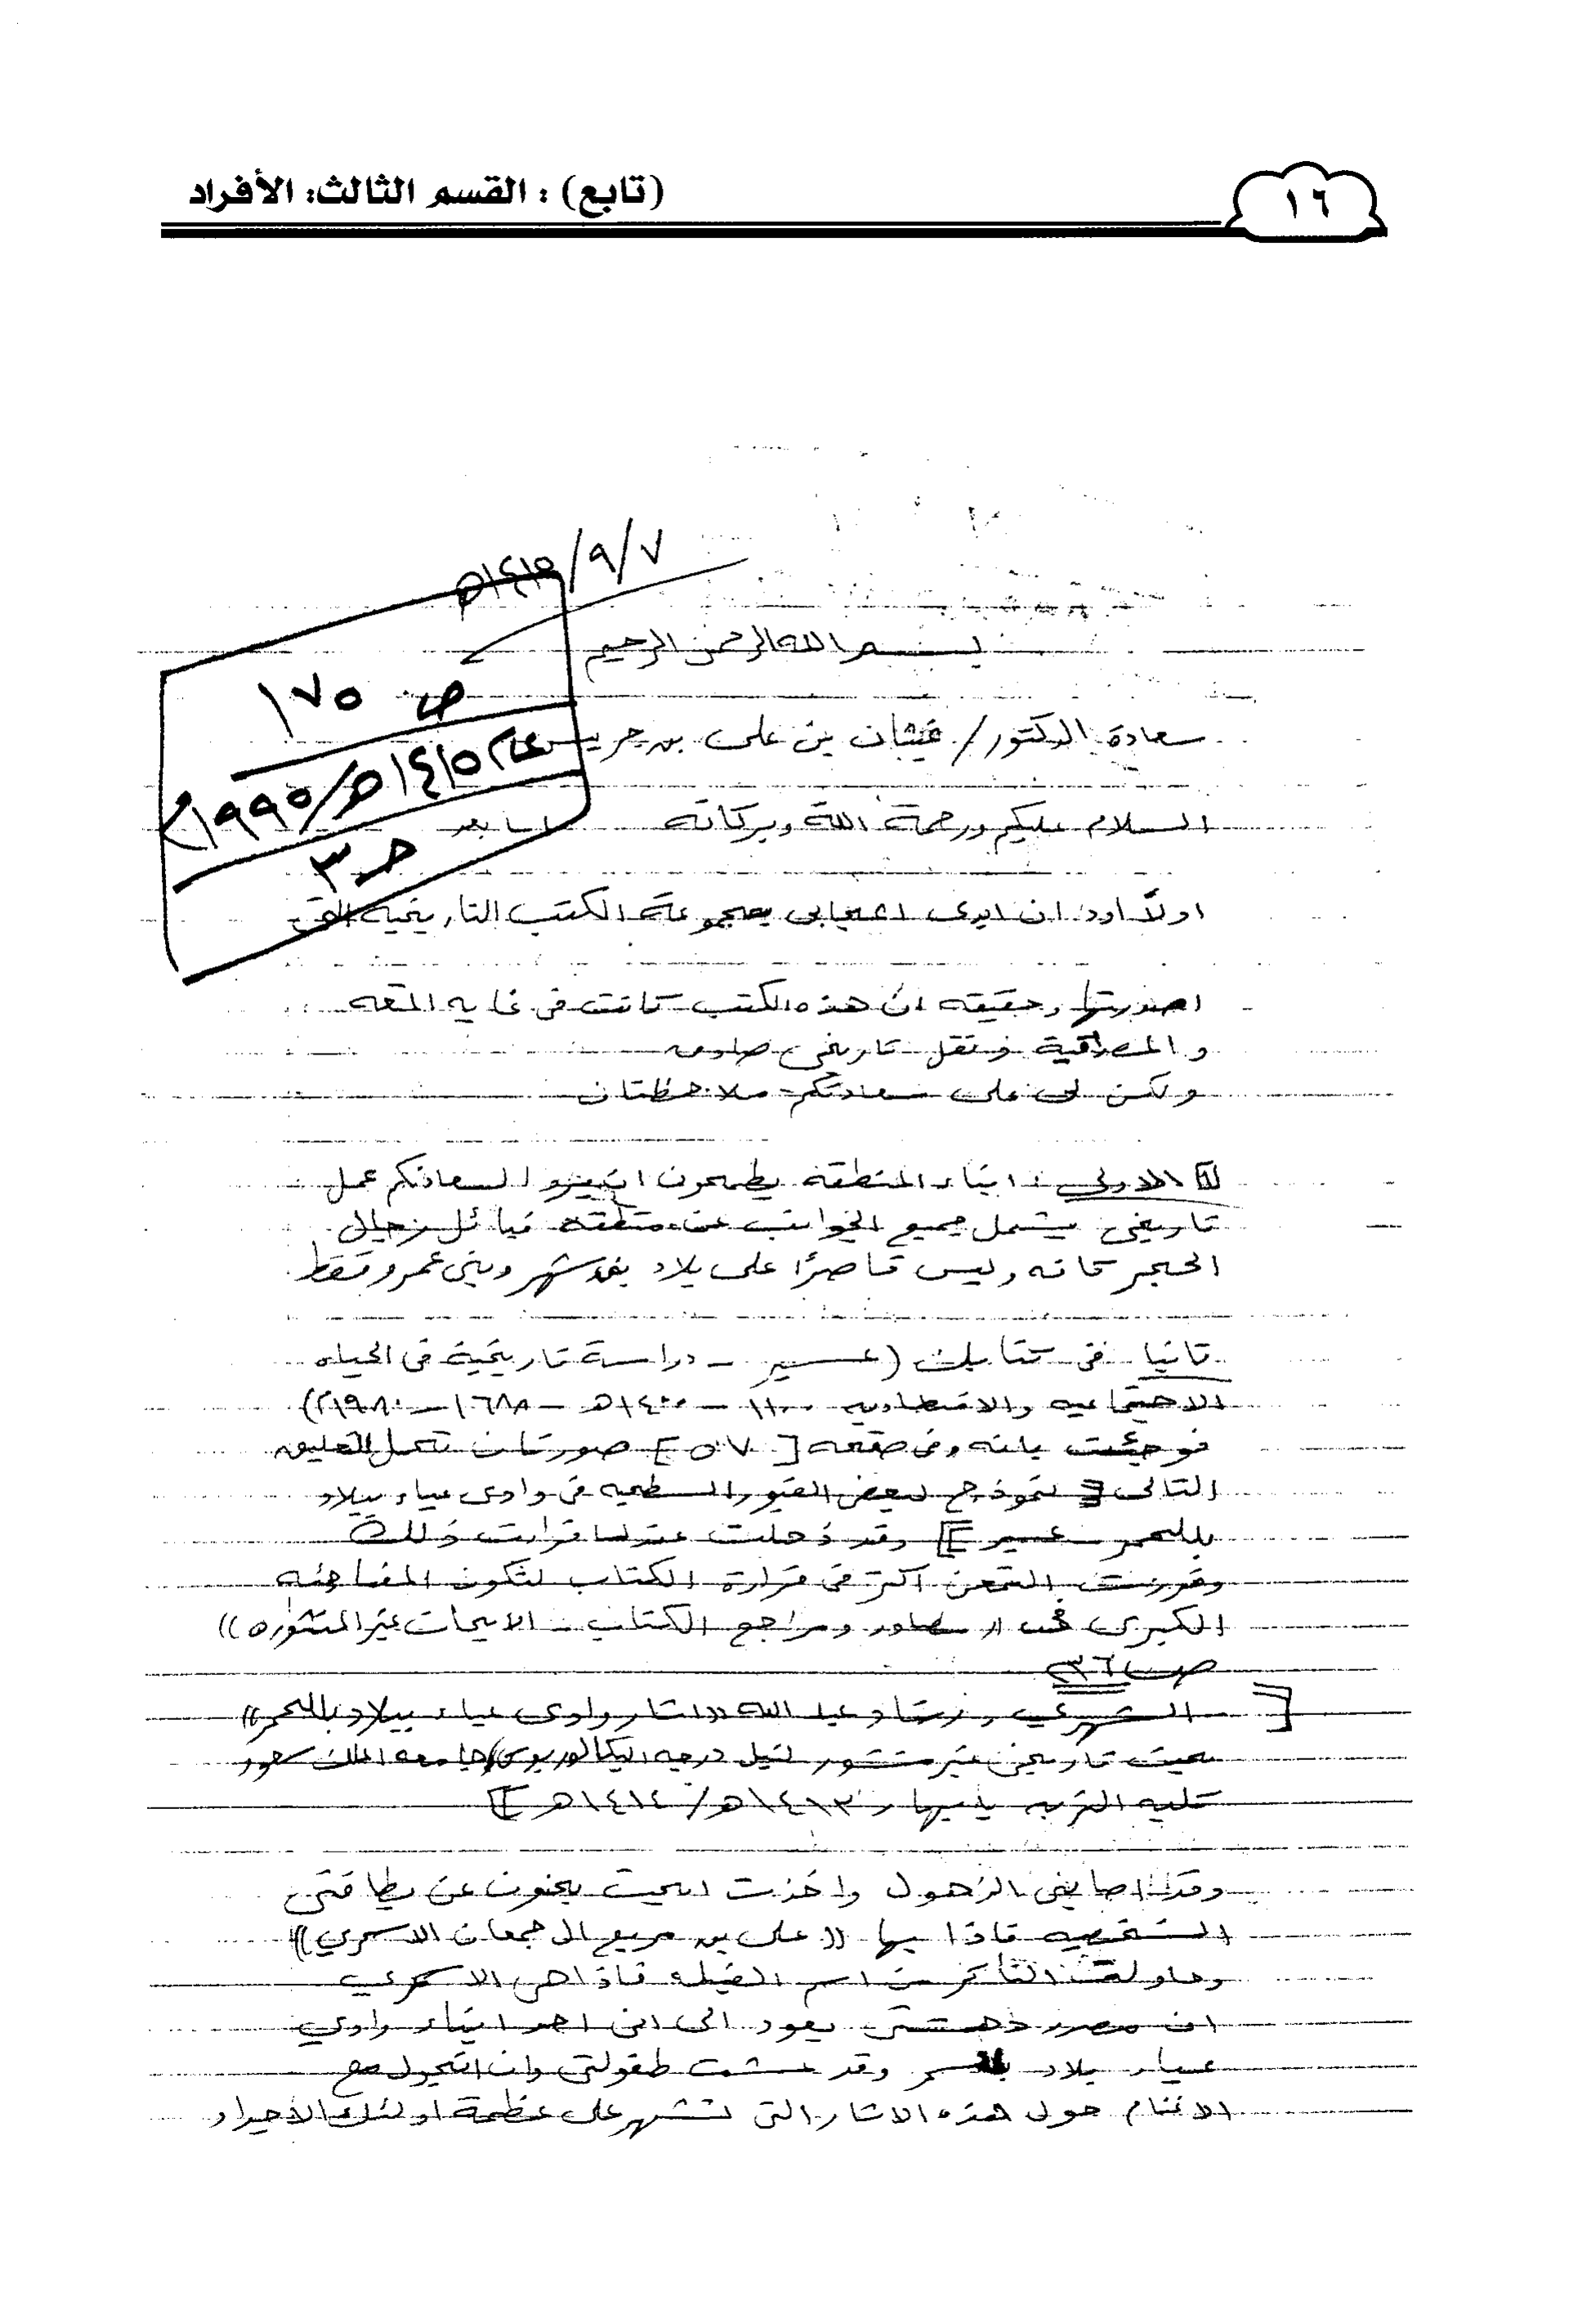 ١٦
(تابع) : القسم الثالث: الأفراد
١٤١٥/٩/٧هـ
ص ١٧٥
عام ١٤١٥هـ/١٩٩٥م
حـ ٣
بسم الله الرحمن الرحيم
سعادة الدكتور/ غيثان بن علي بن جريس
السلام عليكم ورحمة الله وبركاته اما بعد
اولاً اود ان ابدى اعجابي بمجموعة الكتب التاريخية التي
اصدرتها وحقيقه ان هذه الكتب كانت في غايه المتعه
و المصداقية فى نقل تاريخي صادق
ولكن لى على سعادتكم ملاحظتان
١ الاولى : ابناء المنطقه يطمحون ان لسعادتكم عمل
تاريخي يشمل جميع الجوانب عن منطقه قبائل رجال
الحجر كافه وليس قاصرًا على بلاد بنى شهر وبني عمرو فقط
ثانيا في كتابك (عسير - دراسة تاريخية في الحياه
الاجتماعيه والاقتصاديه ١١٠٠ - ١٤٠٠هـ - ١٦٨٨ - ١٩٨٠م)
فوجئت بانه وفى صفحه [٥٧] صورتان تحمل التعليق
التالى [نموذج لبعض القبور السطحيه في وادى عياء ببلاد
بللحمر - عسير] وقد ذهلت عندما قرات ذلك
وقررت التمعن اكثر في قراءة الكتاب لتكون المفاجئه
الكبرى فى (( مصادر ومراجع الكتاب - الابحاث غير المنشوره ))
ص ٢٣٦
[الشهري ، رشاد عبد الله ((اثار وادى عياء ببلاد بللحمر))
بحث تاريخي غير منشور لنيل درجه البكالوريوس/جامعه الملك سعود
كليه التربيه بابها ، ١٤١٣هـ / ١٤١٤هـ]
وقد اصابني الذهول واخذت ابحث بجنون عن بطاقتي
الشخصيه فاذا بها (( علي بن مريع ال جمعان الاسمري ))
وحاولت التأكد من اسم القبيله فاذا هى الاسمري
ان مصدر دهشتي يعود الى انى احد ابناء وادي
عياء بلاد وقد عشت طفولتي وانا اتجول مع
الاغنام حول هذه الاثار التي تشهد على عظمة اولئك الاجداد